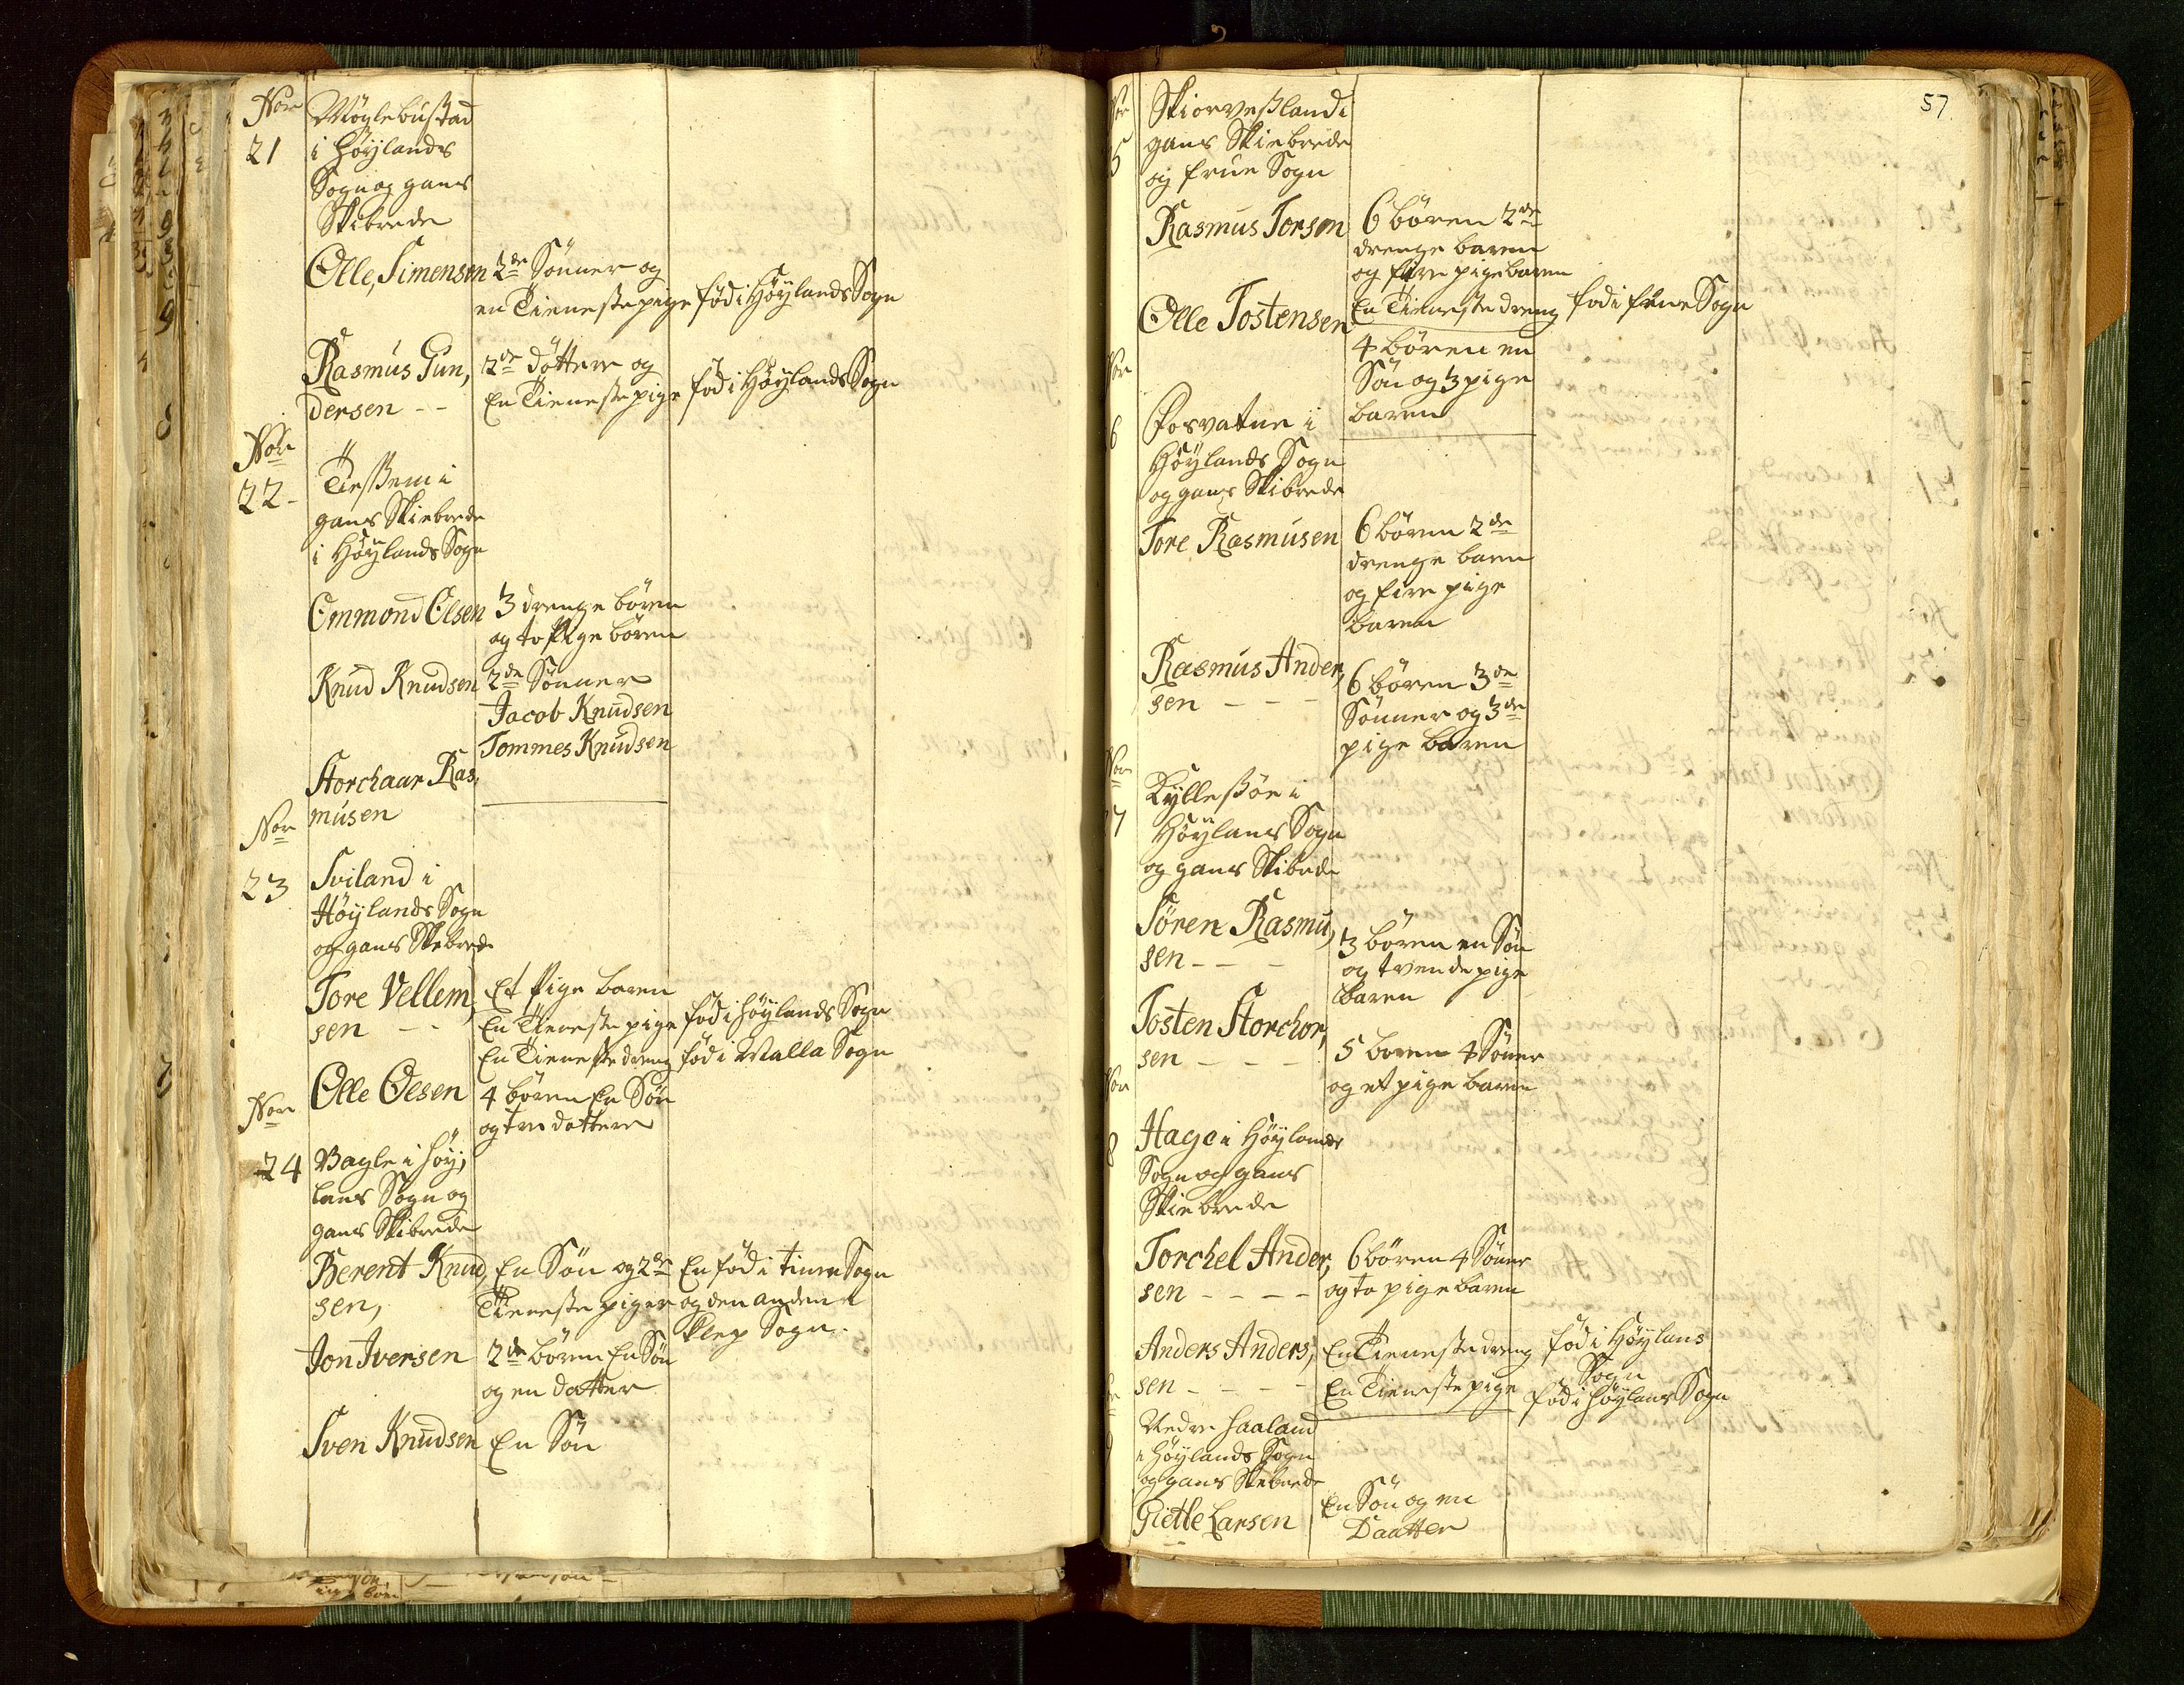 Nor
21
Møglebustad
i Høylands
Sogn og gans
Skibrede
Olle, Simensen 2de Sønner og
en Tieneste pige fød i Høylands Sogn
Rasmus Gun, 2de døttere og
dersen - - En Tieneste pige fød i Høylands Sogn
Nor
22 -
i
gans Skiebrede
i Høylands Sogn
Ommond Olsen 3 drenge børen
og to Pige børen
Knud Knudsen 2de Sønner
Jacob Knudsen
Tommes Knudsen
Storchaar Ras,
musen
Nor
23
Sviland i
Høylands Sogn
og gans Skebrede
Tore Vellem, Et Pige baren
sen - - En Tieneste pige fød i Høylands Sogn
En Tieneste dreng fød i Malla Sogn
Olle Olsen 4 børen En Søn
og tre dottere
Nor
24
Bogle i Høy,
lans Sogn og
gans Skibrede
Berent Knud, En Søn og 2de En fød i Time Sogn
sen, Tieneste piger og den anden i
Klep Sogn.
Jon Iversen 2de børen En Søn
og en datter
Sven Knudsen En Søn
57
Nor
5
Skiorveslandi
gans Skiebrede
og frue Sogn
Rasmus Torsen 6 børen 2de
drenge baren
og fire pige baren
Olle Tostensen En Tieneste dreng fød i frue Sogn
4 børen en
Søn og 3 pige
baren
Nor
6
Fosvatne i
Høylands Sogn
og gans Skibrede
Tore Rasmusen 6 børen 2de
drenge baren
og fire pige
baren
Rasmus Ander, 6 børen 3de
sen - - - Sønner og 3de
pige baren
Nor
7
Kyllesøe i
Høylans Sogn
og gans Skibrede
Søren Rasmu, 3 børen en Søn
sen - - - og tvende pige
baren
Tosten Storchor,
sen - - - 5 boren 4 Søner
og et pige baren
Nor
8
Hage i Høylands
Sogn og gans
Skiebrede
Torchel Ander, 6 børen 4 Søner
sen - - - - og to pige baren
Anders Anders, En Tieneste dreng fød i Høylans
sen - - - - Sogn
En Tieneste pige fød i Høylans Sogn
Nedre Haaland
i Høylands Sogn
og gans Skebrede
Giette Larsen En Søn og en
Daatter